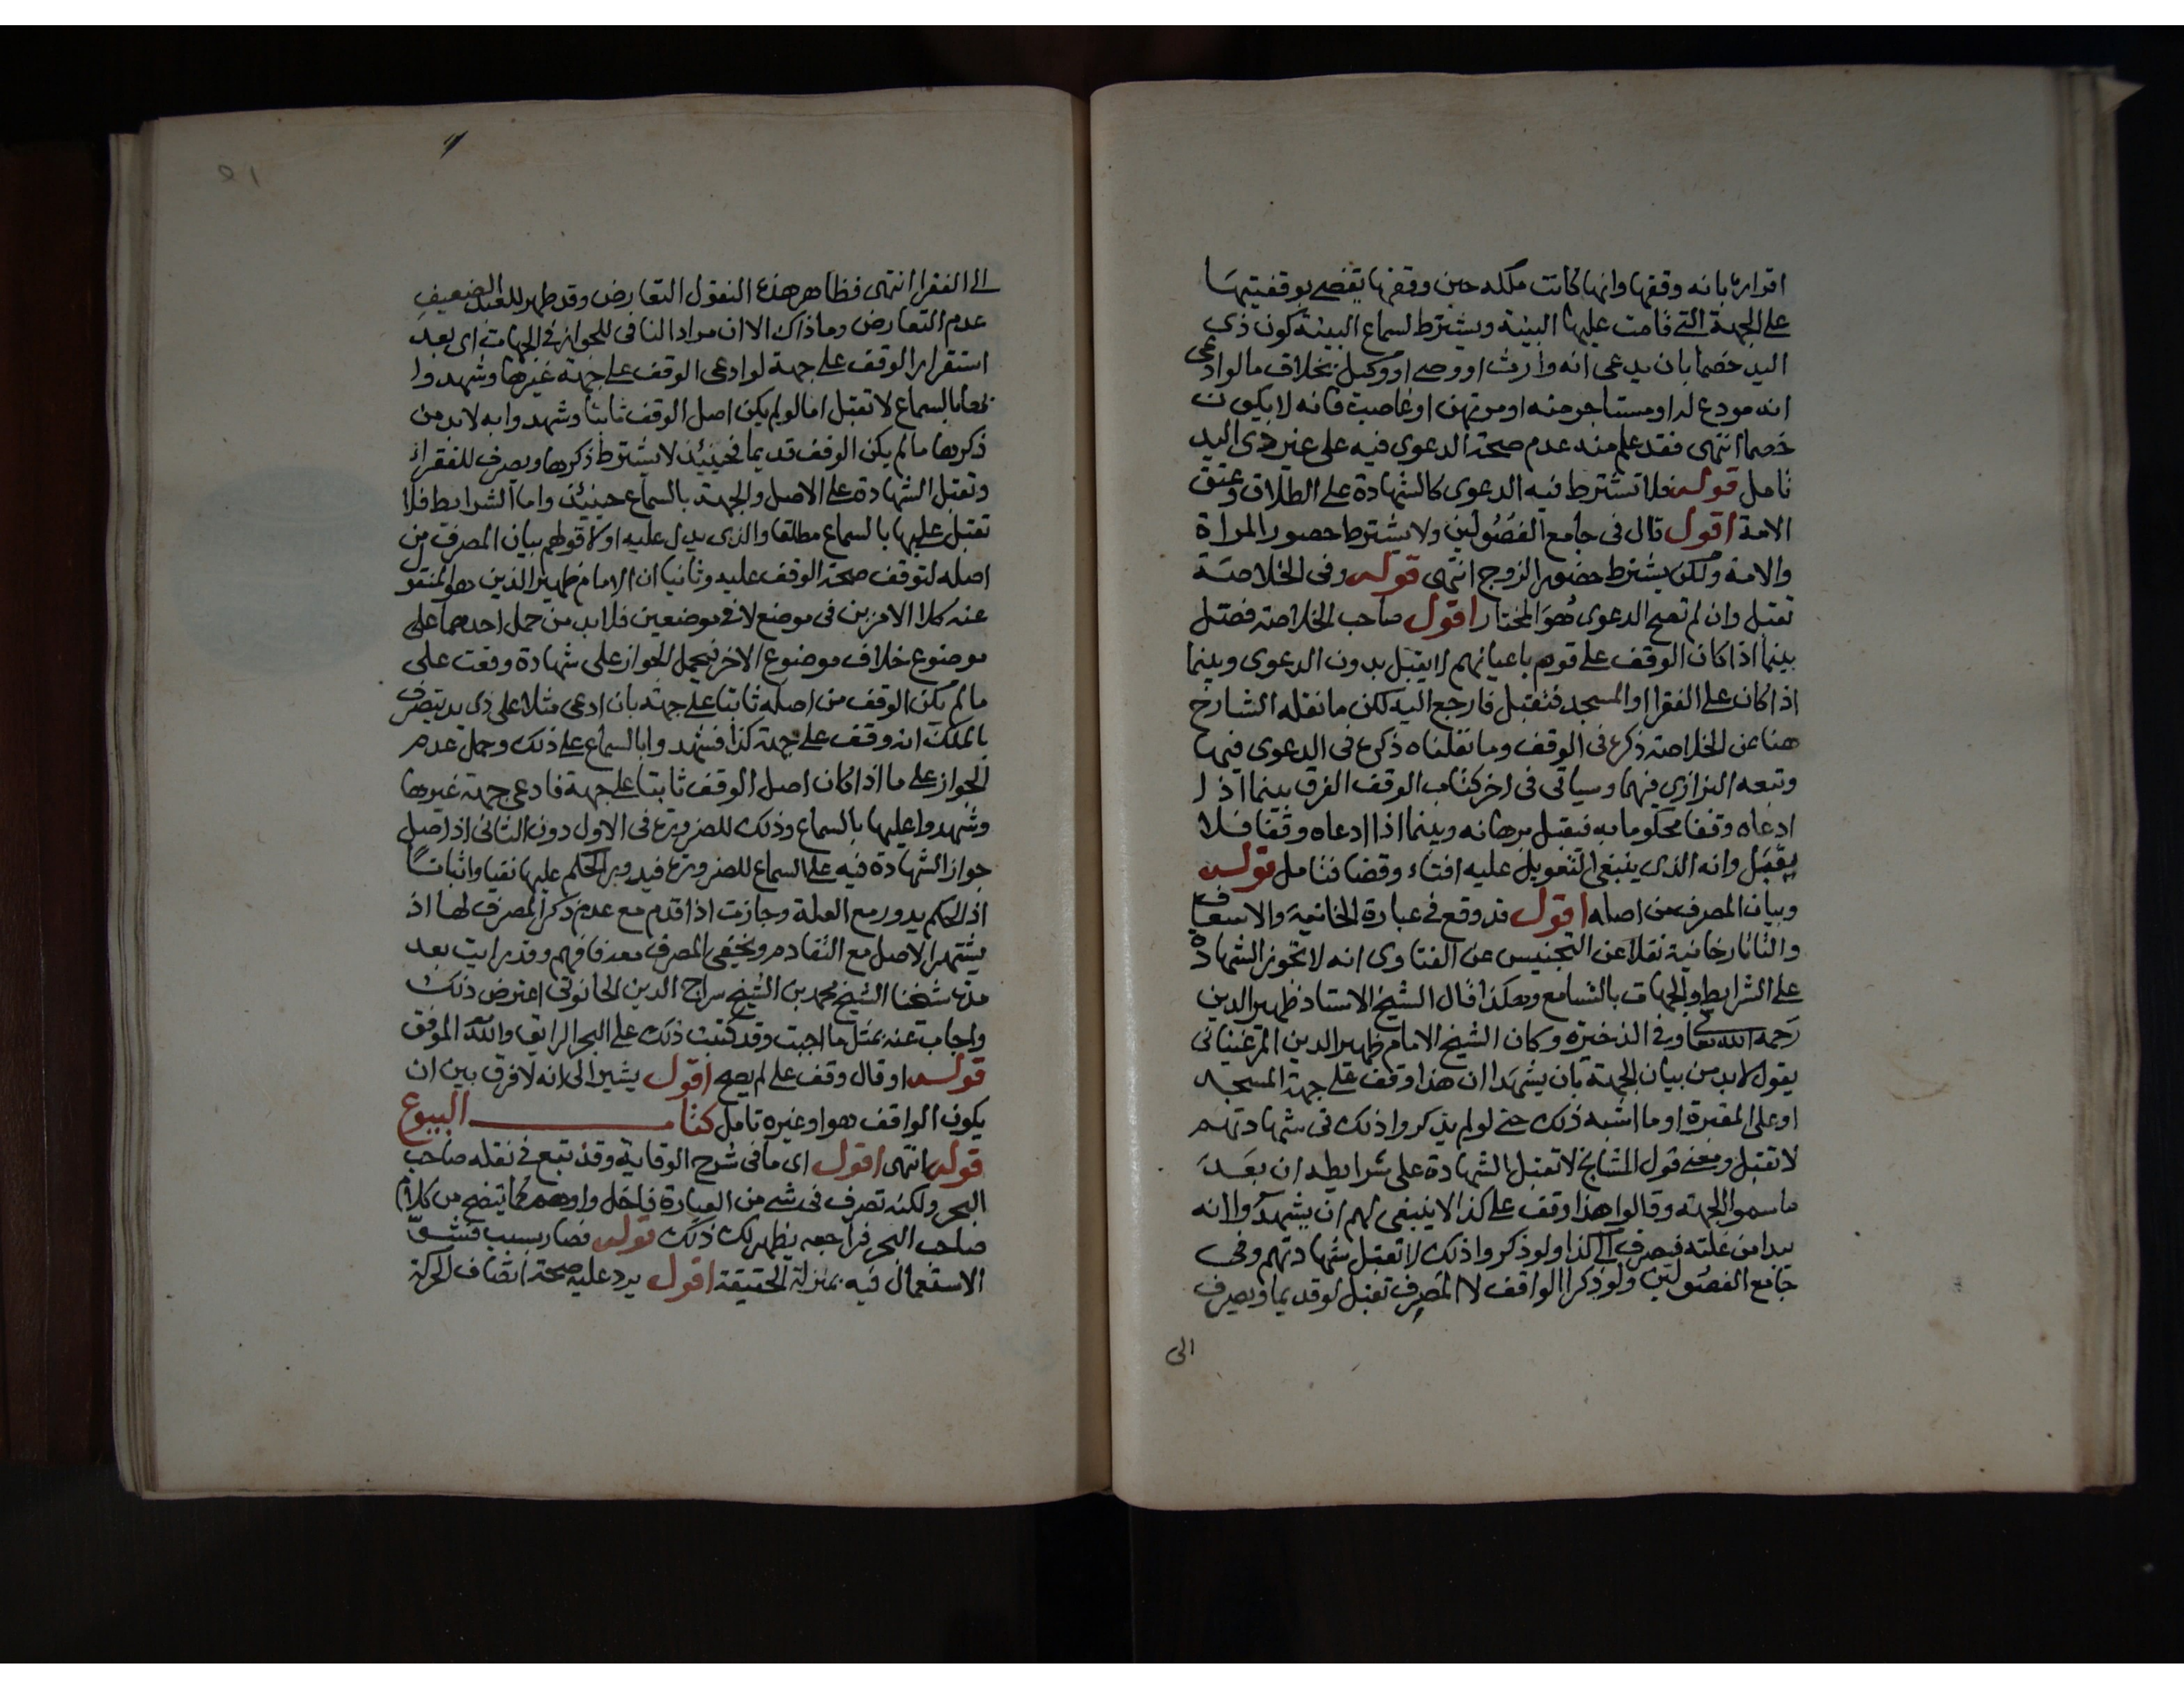 اقراره بانه وقفها وانها كانت ملكه حين وقفها يقضى بوقفيتها
على الجهة التي قامت عليها البينة ويشترط لسماع البينة كون ذي
اليد خصما بان يدعى انه وارث او وصي او وكيل بخلاف ما لو ادعى
انه مودع له او مستاجر منه او مرتهن او غاصب فانه لا يكون
خصما انتهى فقد علم منه عدم صحة الدعوى فيه على غير ذى اليد
تامل قوله فلا تشترط فيه الدعوى كالشهادة على الطلاق وعتق
الامة اقول قال فى جامع الفصولين ولا يشترط حضور المراة
والامة ولكن يشترط حضور الزوج انتهى قوله وفى الخلاصة
تقبل وان لم تصح الدعوى هو المختار اقول صاحب الخلاصة فصل
بينما اذا كان الوقف على قوم باعيانهم لا يقبل بدون الدعوى وبينما
اذا كان على الفقرا او المسجد فتقبل فارجع اليه لكن ما نقله الشارح
هنا عن الخلاصة ذكره فى الوقف وما نقلناه ذكره فى الدعوى فيها
وتبعه البزازي فيهما وسياتى فى اخر كتاب الوقف الفرق بينما اذا
ادعاه وقفا محكوما به فيقبل برهانه وبينما اذا ادعاه وقفا فلا
يقبل وانه الذى ينبغى التعويل عليه افتاء وقضا فتامل قوله
وبيان المصرف من اصله اقول قد وقع في عبارة الخانية والاسعاف
والتاتارخانية نقلا عن التجنيس عن الفتاوى انه لا تجوز الشهادة
على الشرايط والجهات بالتسامع وهكذا قال الشيخ الاستاد ظهير الدين
رحمه الله تعا وفي الذخيرة وكان الشيخ الامام ظهير الدين المرغينانى
يقول لا بد من بيان الجهة بان يشهدا ان هذا وقف على جهة المسجد
او على المقبرة او ما اشبه ذلك حتى لو لم يذكروا ذلك فى شهادتهم
لا تقبل ومعنى قول المشايخ لا تقبل الشهادة على شرايطه ان بعد
ما سموا الجهة وقالوا هذا وقف على كذا لا ينبغى لهم ان يشهدوا انه
يبدا من غلته فيصرف الى كذا ولو ذكروا ذلك لا تقبل شهادتهم وفى
جامع الفصولين ولو ذكرا الواقف لا المصرف تقبل لو قديما ويصرف
الى
الى الفقرا انتهى فظاهر هذه النقول التعارض وقد ظهر للعبد الضعيف
عدم التعارض وما ذاك الا ان مراد النافى للجواز في الجهات اى بعد
استقرار الوقف على جهة لو ادعى الوقف على جهة غيرها وشهدوا
بها بالسماع لا تقبل اما لو لم يكن اصل الوقف ثابتا وشهدوا به لا بد من
ذكرها ما لم يكن الوقف قديما فحينئذ لا يشترط ذكرها ويصرف للفقراء
وتقبل الشهادة على الاصل والجهة بالسماع حينئذ واما الشرايط فلا
تقبل عليها بالسماع مطلقا والذى يدل عليه اولا قولهم بيان المصرف من
اصله لتوقف صحة الوقف عليه وثانيا ان الامام ظهير الدين هو المنقول
عنه كلا الامرين فى موضع لا في موضعين فلا بد من حمل احدهما على
موضوع خلاف موضوع الاخر فيحمل الجواز على شهادة وقعت على
ما لم يكن الوقف من اصله ثابتا على جهة بان ادعى مثلا على ذى يد يتصرف
بالملك انه وقف على جهة كذا فشهدوا بالسماع على ذلك وحمل عدم
الجواز على ما اذا كان اصل الوقف ثابتا على جهة فادعى جهة غيرها
وشهدوا عليها بالسماع وذلك للضرورة فى الاول دون الثانى اذ اصل
جواز الشهادة فيه على السماع للضرورة فيدور الحكم عليها نفيا واثباتا
اذ الحكم يدور مع العلة وجازت اذا قدم مع عدم ذكر المصرف لها اذ
يشتهر الاصل مع التقادم ويخفى المصرف معه فافهم وقد رايت بعد
مدة شيخنا الشيخ محمد بن الشيخ سراج الدين الحانوتى اعترض ذلك
واجاب عنه بمثل ما اجبت وقد كتبت ذلك على البحر الرايق والله الموفق
قوله او قال وقف على لم يصح اقول يشير الى انه لا فرق بين ان
يكون الواقف هو او غيره تامل كتاب البيوع
قوله انتهى اقول اى ما فى شرح الوقاية وقد تبع في نقله صاحب
البحر ولكنه تصرف فى شي من العبارة فاخل واوهم كما يتضح من كلام
صاحب البحر فراجعه يظهر لك ذلك قوله فصار بسبب فشو
الاستعمال فيه بمنزلة الحقيقة اقول يرد عليه صحة اتصاف الحركة